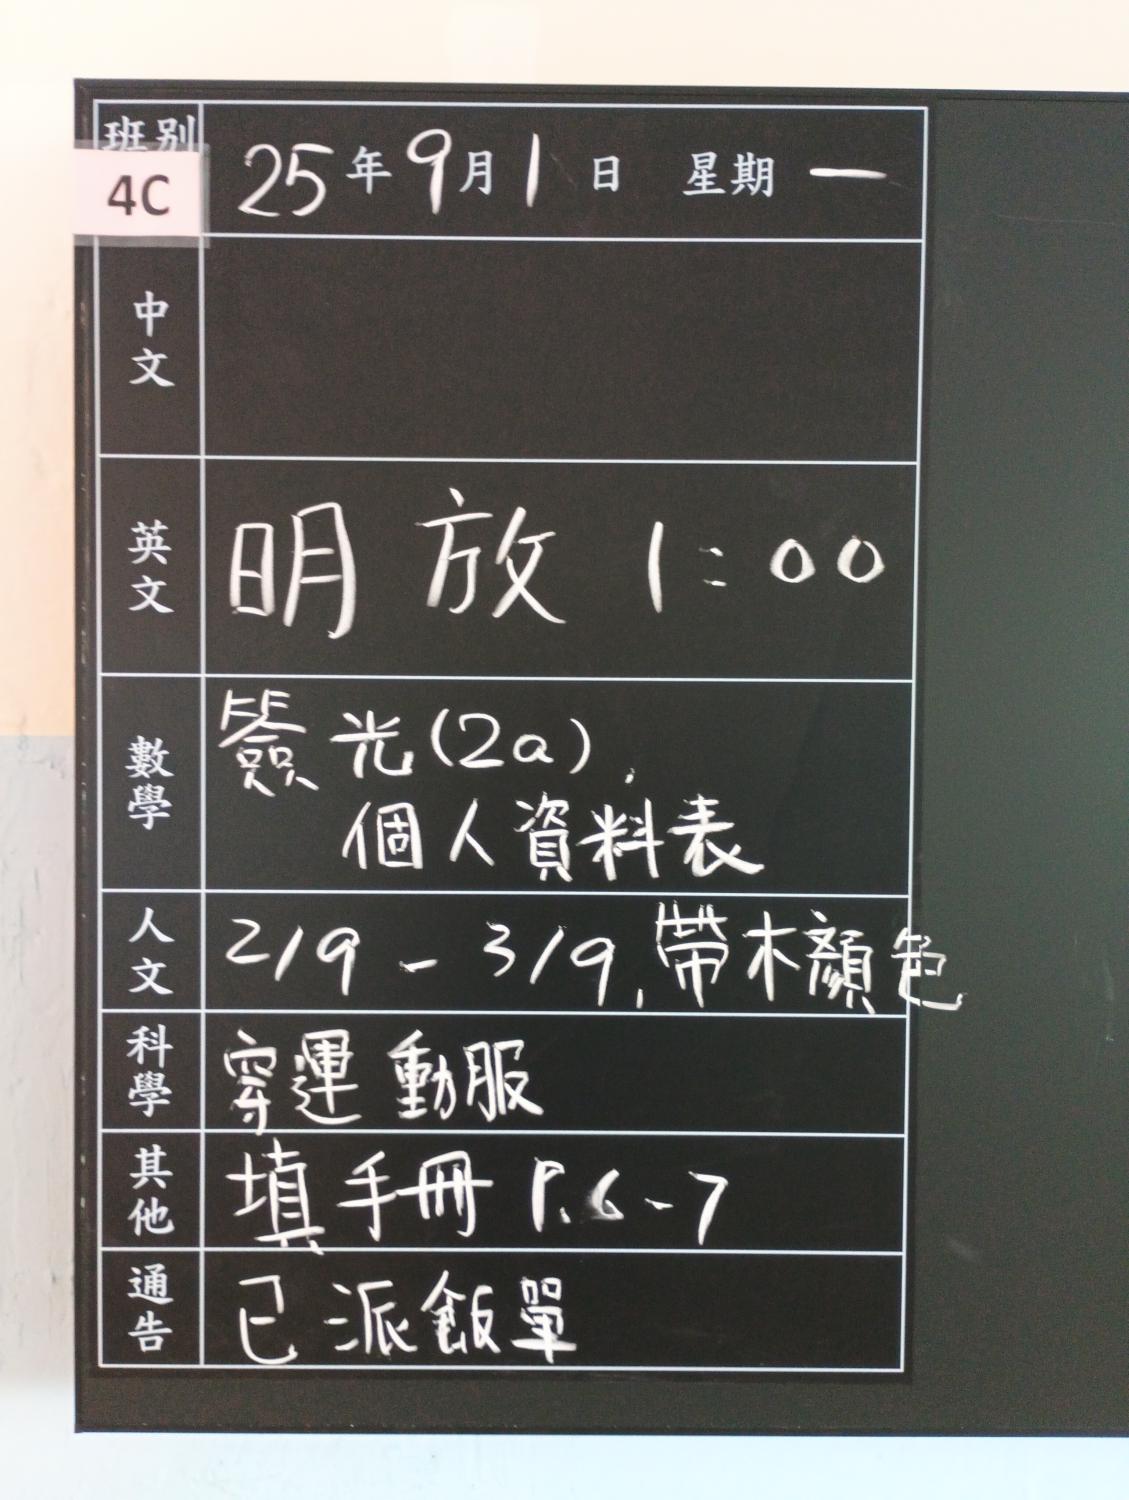 班別 25年9月1日 星期一
4C
中文
英文 明放 1:00
數學 簽光(2a),
個人資料表
人文 2/9 - 3/9, 帶木顏色
科學 穿運動服
其他 填手冊 P.6-7
通告 已派飯單